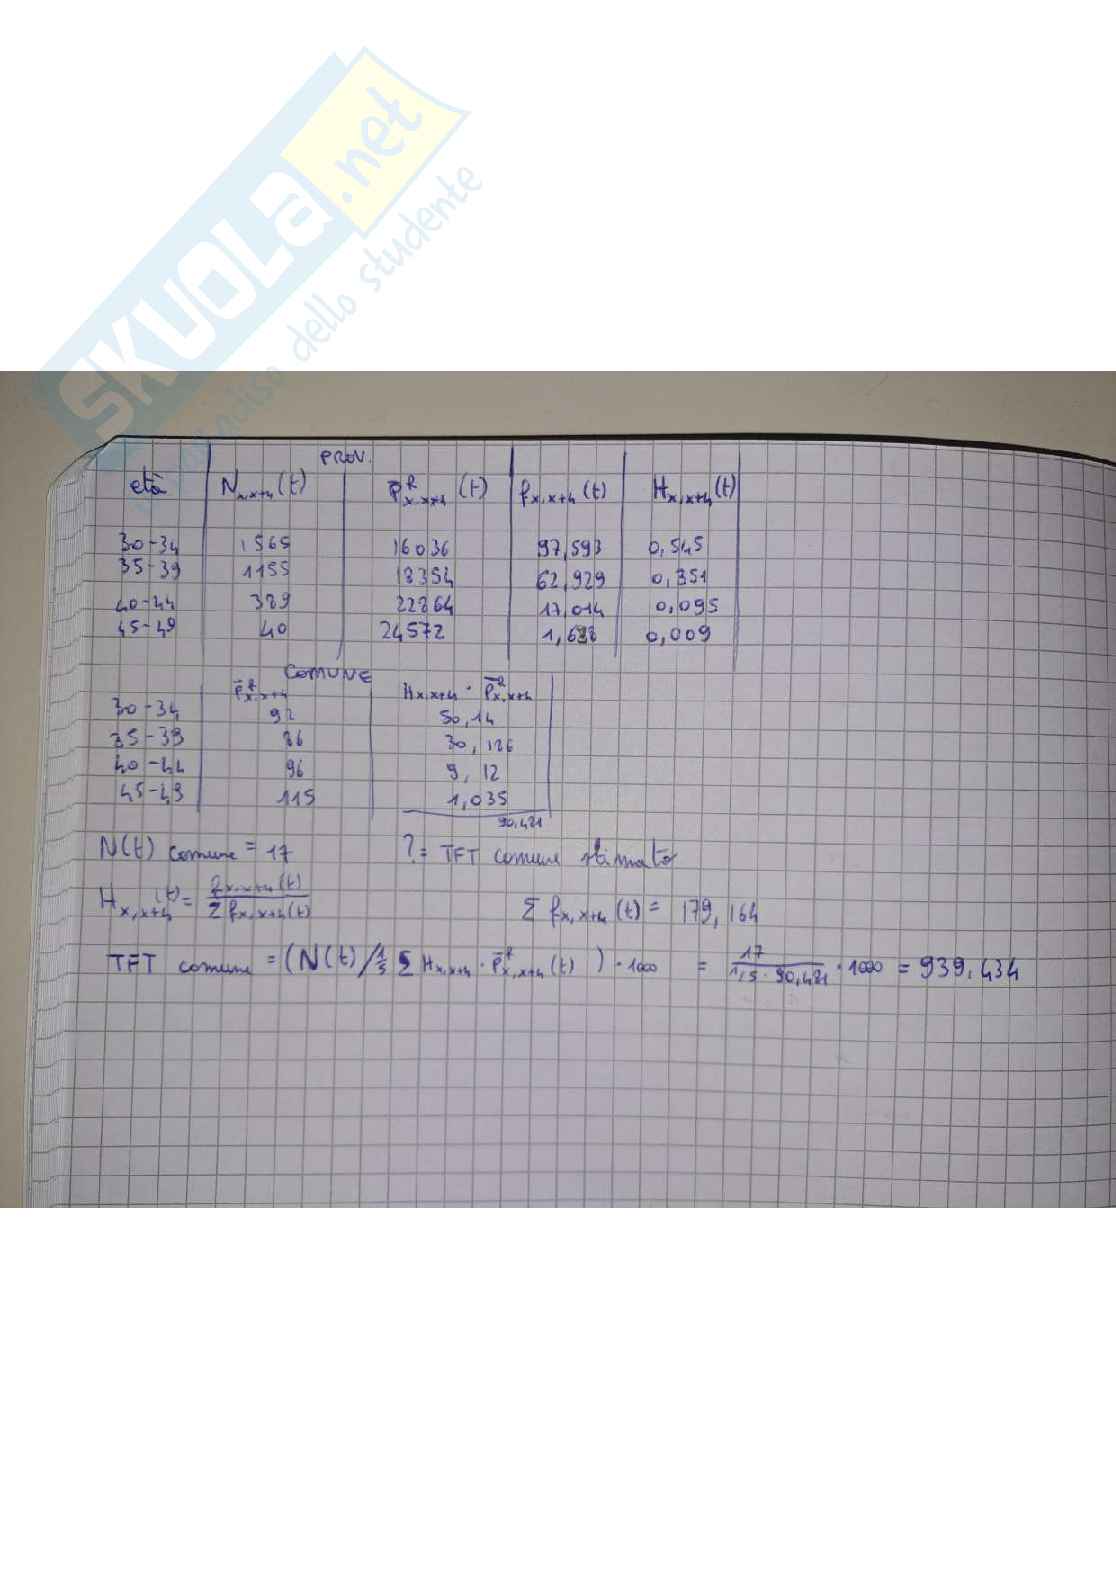 SKUOLA.net
paradiso dello studente
PROV.
età N x,x+4 (t) P̄ᶠ x,x+4 (t) f x,x+4 (t) H x,x+4 (t)
30-34 1565 16036 97,593 0,545
35-39 1155 18354 62,929 0,351
40-44 389 22864 17,014 0,095
45-49 40 24572 1,628 0,009
COMUNE
P̄ᶠ x,x+4 H x,x+4 · P̄ᶠ x,x+4
30-34 92 50,14
35-39 86 30,186
40-44 96 9,12
45-49 115 1,035
90,481
N(t) comune = 17 ? = TFT comune stimato
H x,x+4 (t) = f x,x+4 (t) / Σ f x,x+4 (t) Σ f x,x+4 (t) = 179,164
TFT comune = (N(t) / 1/5 Σ H x,x+4 · P̄ᶠ x,x+4 (t)) · 1000 = 17 / 1/5 · 90,481 · 1000 = 939,434